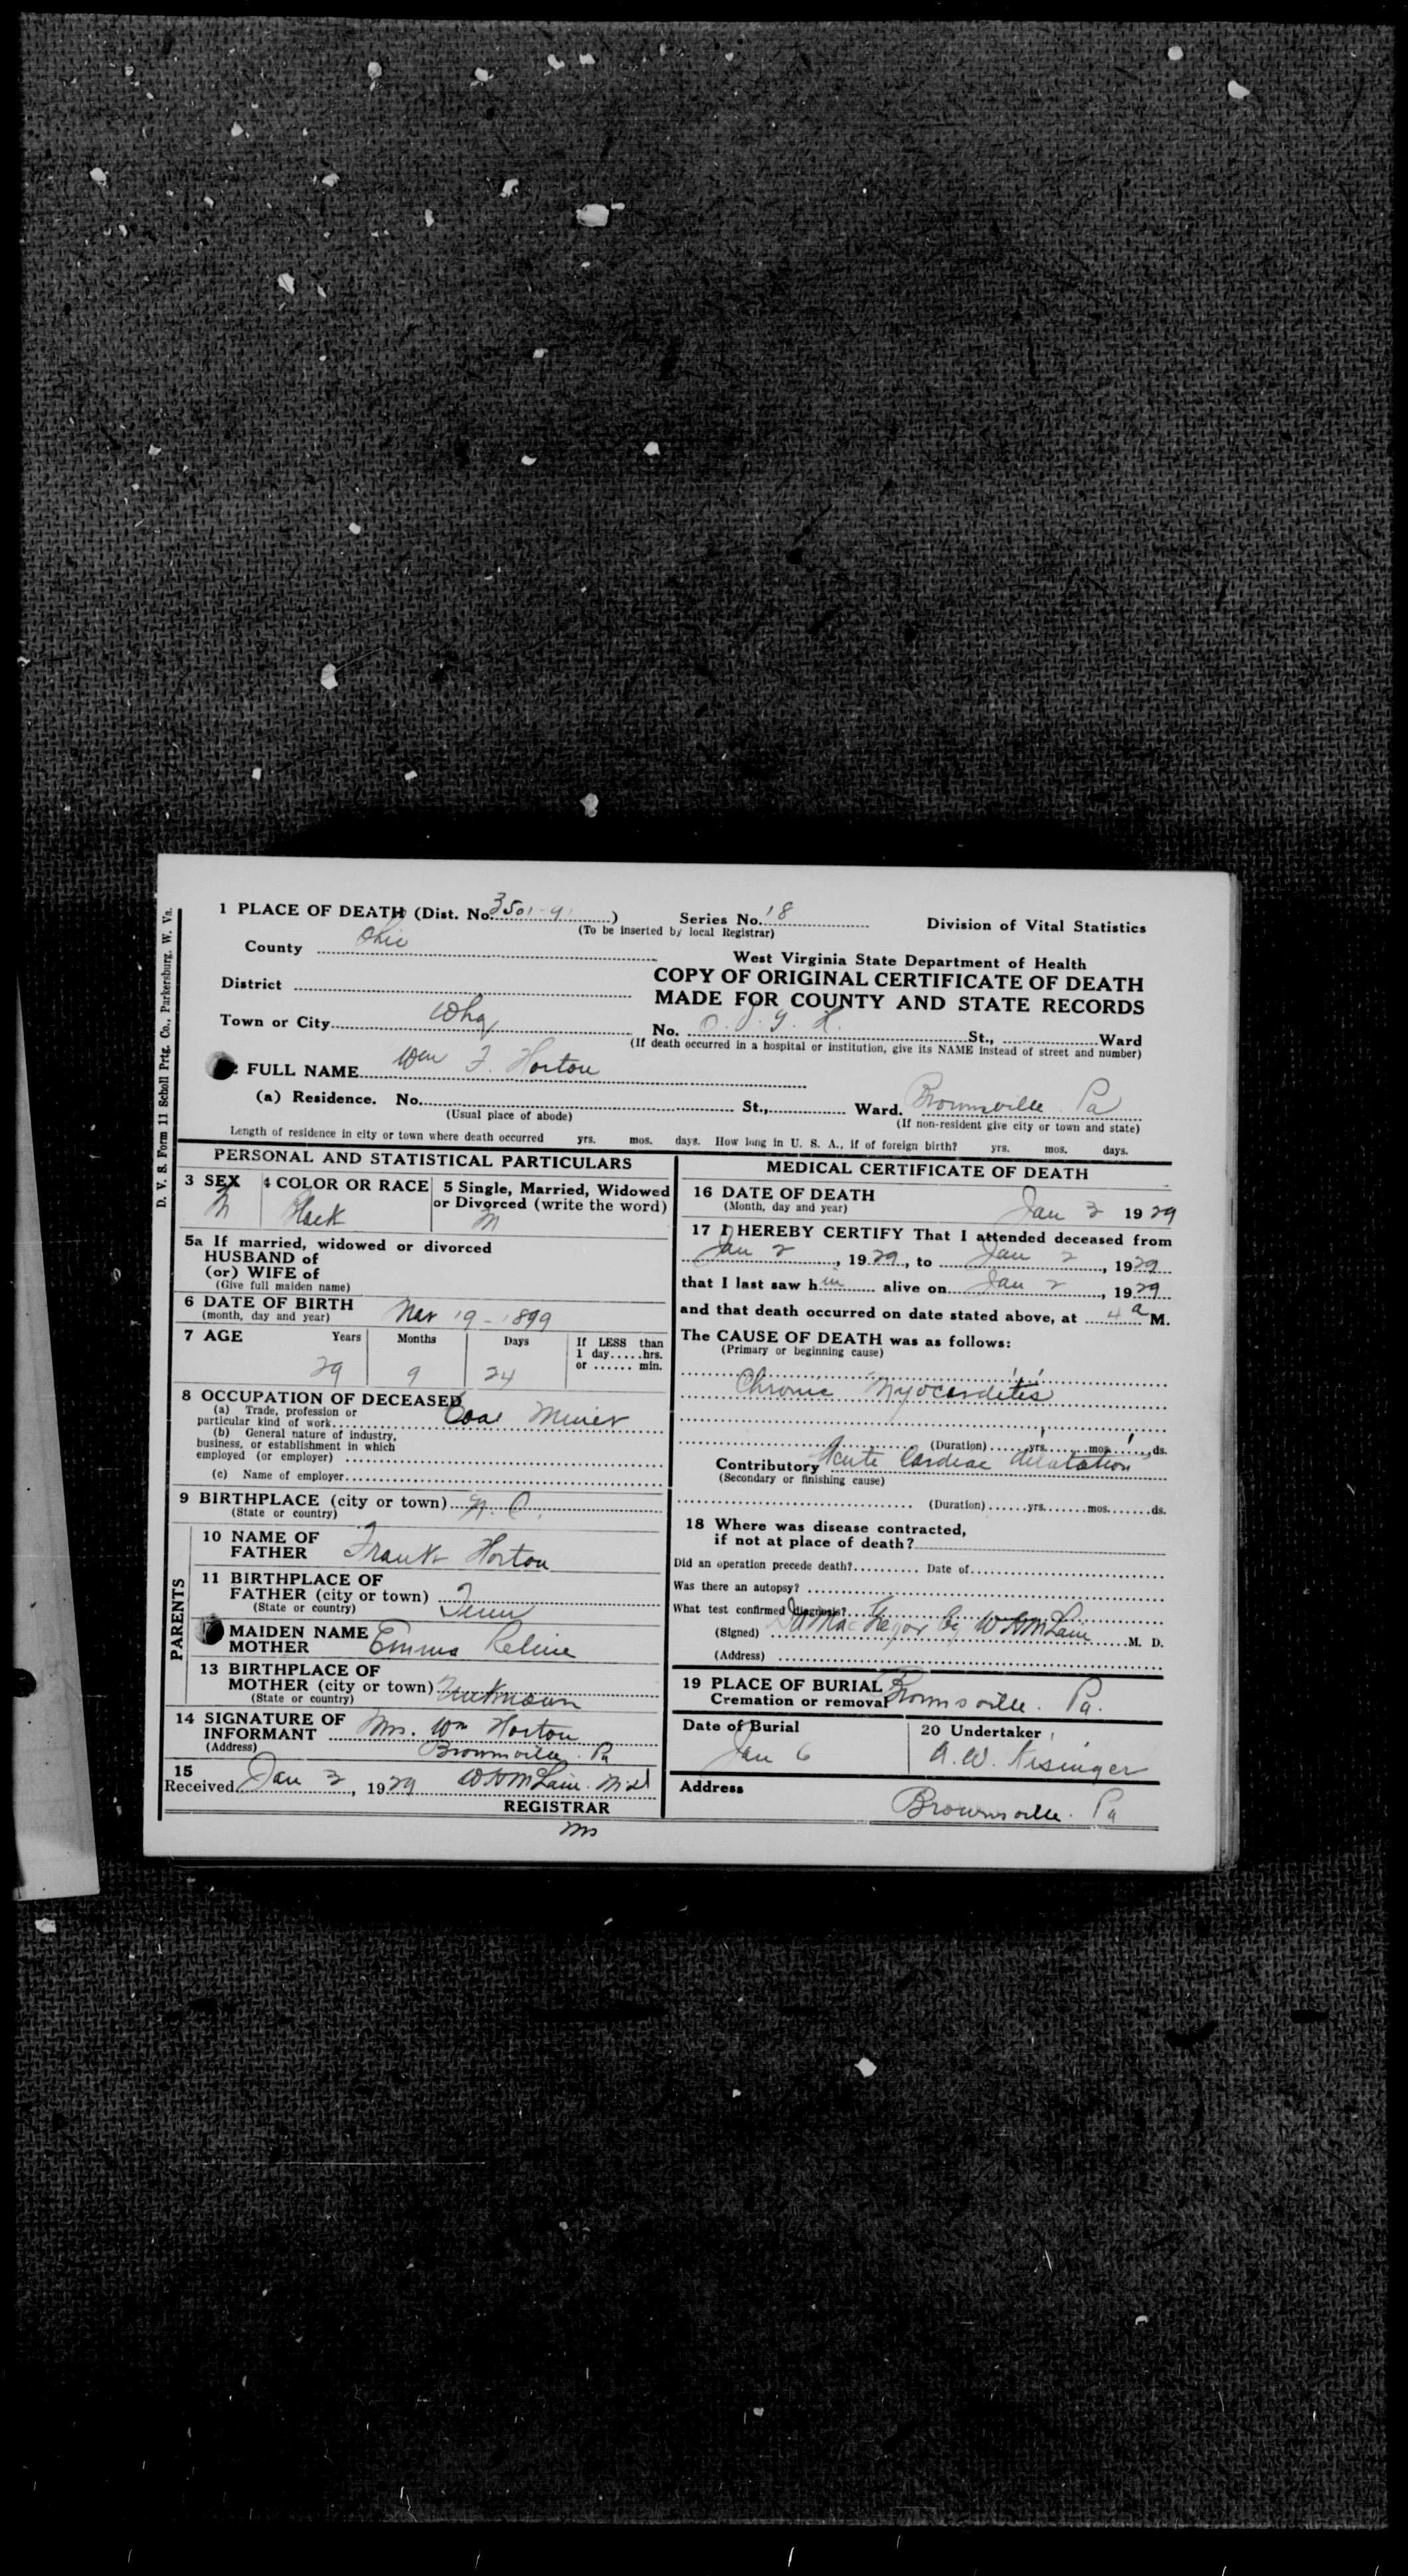 D. V. S. Form 11 Scholl Prtg. Co., Parkersburg. W. Va.
1 PLACE OF DEATH (Dist. No. 3501-91) Series No. 18 Division of Vital Statistics
(To be inserted by local Registrar)
County Ohio
West Virginia State Department of Health
COPY OF ORIGINAL CERTIFICATE OF DEATH
MADE FOR COUNTY AND STATE RECORDS
District
Town or City Whg No. O. V. G. H. St., Ward
(If death occurred in a hospital or institution, give its NAME instead of street and number)
FULL NAME Wm F. Horton
(a) Residence. No. St., Ward. Brownsville Pa
(Usual place of abode) (If non-resident give city or town and state)
Length of residence in city or town where death occurred yrs. mos. days. How long in U. S. A., if of foreign birth? yrs. mos. days.
PERSONAL AND STATISTICAL PARTICULARS
3 SEX 4 COLOR OR RACE 5 Single, Married, Widowed
or Divorced (write the word)
M Black M
5a If married, widowed or divorced
HUSBAND of
(or) WIFE of
(Give full maiden name)
6 DATE OF BIRTH
(month, day and year) Mar 19 - 1899
7 AGE Years Months Days If LESS than
1 day.....hrs.
or ...... min.
29 9 24
8 OCCUPATION OF DECEASED
(a) Trade, profession or
particular kind of work Coal Miner
(b) General nature of industry,
business, or establishment in which
employed (or employer)
(c) Name of employer
9 BIRTHPLACE (city or town) N. C.
(State or country)
PARENTS
10 NAME OF
FATHER Frank Horton
11 BIRTHPLACE OF
FATHER (city or town) Tenn
(State or country)
MAIDEN NAME
MOTHER Emma
13 BIRTHPLACE OF
MOTHER (city or town) Unknown
(State or country)
14 SIGNATURE OF
INFORMANT Mrs. Wm Horton
(Address) Brownsville. Pa
15
Received Jan 3, 1929 W H McLain. M D
REGISTRAR
ms
MEDICAL CERTIFICATE OF DEATH
16 DATE OF DEATH
(Month, day and year) Jan 3 1929
17 I HEREBY CERTIFY That I attended deceased from
Jan 2, 1929, to Jan 2, 1929
that I last saw h im alive on Jan 2, 1929
and that death occurred on date stated above, at 4 a M.
The CAUSE OF DEATH was as follows:
(Primary or beginning cause)
Chronic Myocarditis
(Duration) yrs. mos. ds.
Contributory Acute Cardiac dilatation
(Secondary or finishing cause)
(Duration)......yrs.......mos.......ds.
18 Where was disease contracted,
if not at place of death?
Did an operation precede death?.......... Date of
Was there an autopsy?
What test confirmed diagnosis?
(Signed) MacGregor by W H McLain M. D.
(Address)
19 PLACE OF BURIAL
Cremation or removal Brownsville. Pa.
Date of Burial 20 Undertaker
Jan 6 A. W. Kisinger
Address
Brownsville. Pa